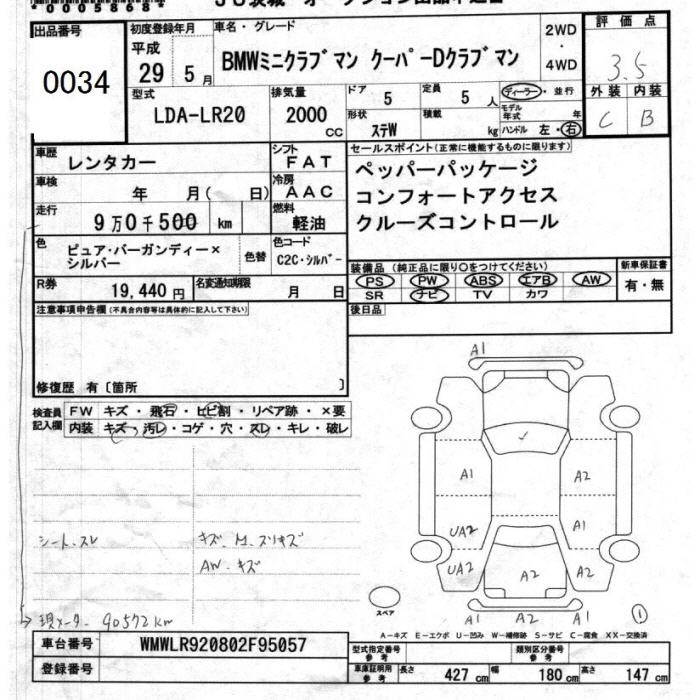 *00005868*
出品番号 初度登録年月 車名・グレード 2WD・4WD 評価点
0034 平成 29 5月 BMWミニクラブマン クーパーDクラブマン 3.5
外装 内装
C B
型式 排気量 ドア 5 定員 5人 ディーラー・並行
LDA-LR20 2000 CC 形状 ステW 積載 kg モデル年式 年 ハンドル 左・右
車歴 レンタカー シフト FAT セールスポイント(正常に機能するものに限ります)
車検 年 月( 日) 冷房 AAC ペッパーパッケージ
コンフォートアクセス
走行 9万0千500 km 燃料 軽油 クルーズコントロール
色 ピュア・バーガンディー×シルバー 色替 色コード C2C・シルバー
装備品(純正品に限り○をつけてください) 新車保証書
R券 19,440円 名変通知期限 月 日 PS PW ABS エアB AW 有・無
SR ナビ TV カワ
注意事項申告欄(不具合内容等は具体的に記入して下さい) 後日品
修復歴 有〔箇所 〕
検査員記入欄 FW キズ・飛石・ヒビ割・リペア跡・×要
内装 キズ・汚レ・コゲ・穴・スレ・キレ・破レ
A1
A1 A2
UA2 A1
UA2 A2 A2
A1 A2 A1
シート、スレ キズ、
AW、キズ
現メーター 90572km
スペア ①
A-キズ E-エクボ U-凹み W-補修跡 S-サビ C-腐食 XX-交換済
車台番号 WMWLR920802F95057 型式指定番号 参考 類別区分番号 参考
登録番号 車庫証明用 参考 長さ 427cm 幅 180cm 高さ 147cm